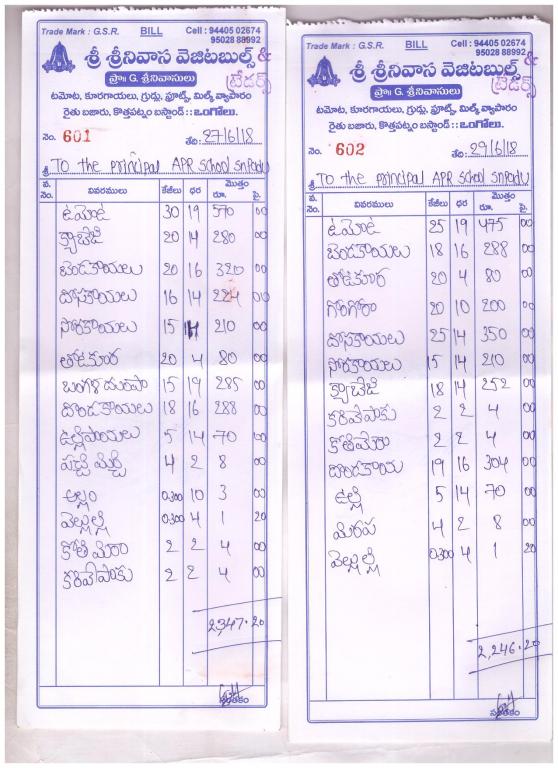 Trade Mark : G.S.R. BILL Cell : 94405 02674
95028 88992
శ్రీ శ్రీనివాస వెజిటబుల్స్ &
ప్రొ॥ G. శ్రీనివాసులు ట్రేడర్స్
టమోట, కూరగాయలు, గ్రుడ్లు, ఫ్రూట్స్, మిల్క్ వ్యాపారం
రైతు బజారు, కొత్తపట్నం బస్టాండ్ :: ఒంగోలు.
నెం. 601 తేది: 27/6/18
శ్రీ To the principal APR School
వ. నెం. వివరములు కేజీలు ధర మొత్తం రూ. పై.
టమోట 30 19 570 00
క్యాబేజి 20 14 280 00
బెండకాయలు 20 16 320 00
దోసకాయలు 16 14 224 00
సొరకాయలు 15 14 210 00
తోటకూర 20 4 80 00
బంగాళదుంపా 15 19 285 00
దొండకాయలు 18 16 288 00
ఉల్లిపాయలు 5 14 70 00
పచ్చి మిర్చి 4 2 8 00
అల్లం 0.300 10 3 00
వెల్లుల్లి 0.300 4 1 20
కోతిమెరా 2 2 4 00
కరివేపాకు 2 2 4 00
2,347.20
సంతకం
Trade Mark : G.S.R. BILL Cell : 94405 02674
95028 88992
శ్రీ శ్రీనివాస వెజిటబుల్స్ &
ప్రొ॥ G. శ్రీనివాసులు ట్రేడర్స్
టమోట, కూరగాయలు, గ్రుడ్లు, ఫ్రూట్స్, మిల్క్ వ్యాపారం
రైతు బజారు, కొత్తపట్నం బస్టాండ్ :: ఒంగోలు.
నెం. 602 తేది: 29/6/18
శ్రీ To the principal APR School
వ. నెం. వివరములు కేజీలు ధర మొత్తం రూ. పై.
టమోట 25 19 475 00
బెండకాయలు 18 16 288 00
తోటకూర 20 4 80 00
గోంగోరా 20 10 200 00
దోసకాయలు 25 14 350 00
సొరకాయలు 15 14 210 00
క్యాబేజి 18 14 252 00
కరివేపాకు 2 2 4 00
కోతిమెరా 2 2 4 00
దొండకాయ 19 16 304 00
ఉల్లి 5 14 70 00
మిరప 4 2 8 00
వెల్లుల్లి 0.300 4 1 20
2,246.20
సంతకం